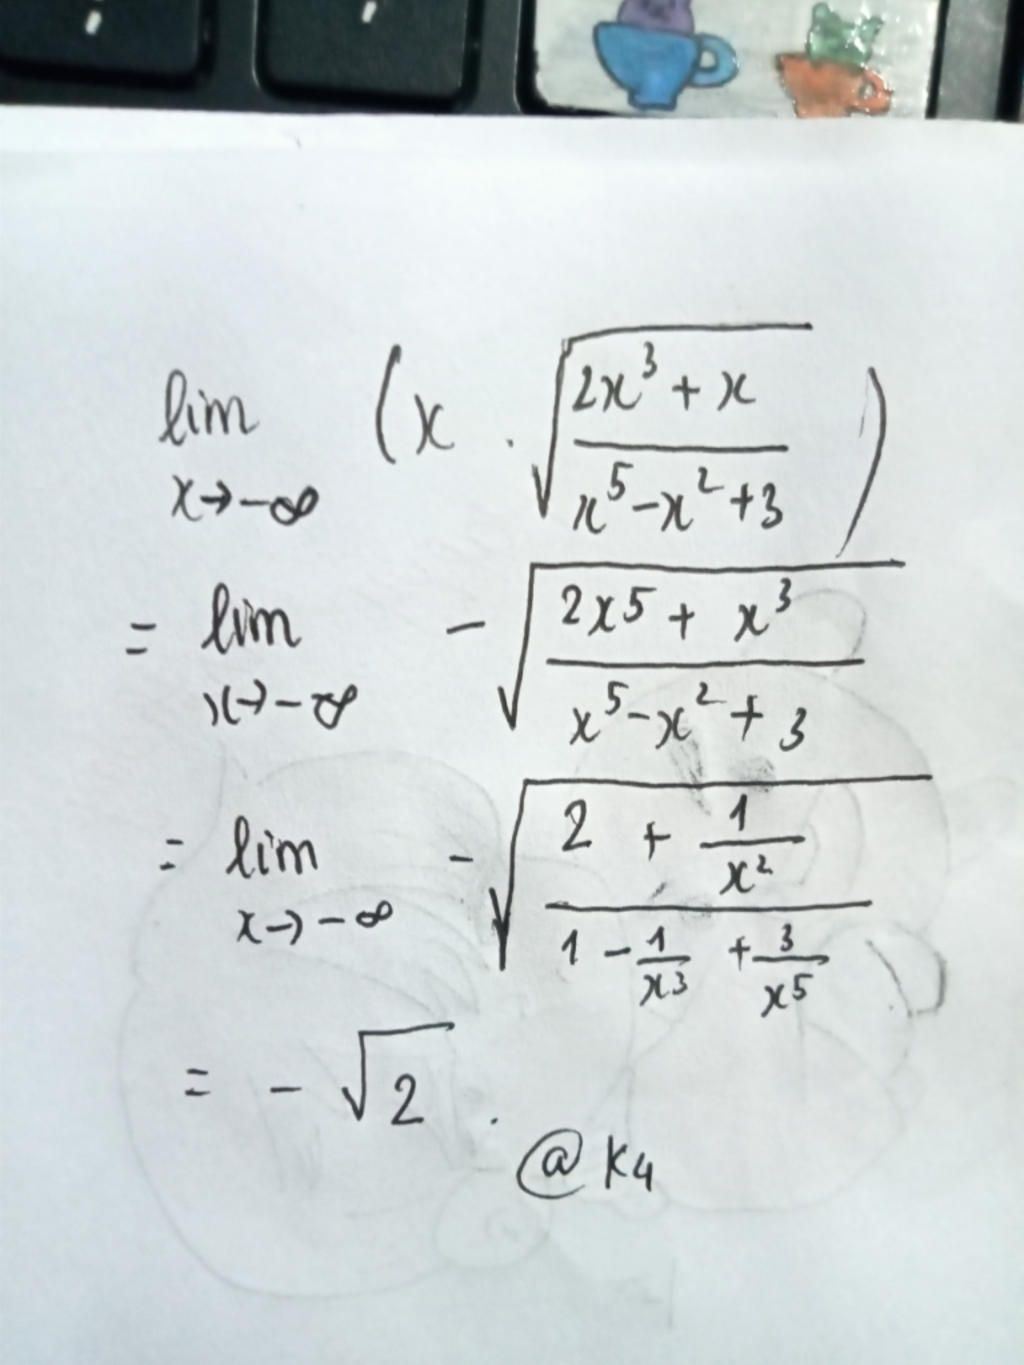 lim x→-∞ (x . √((2x³ + x)/(x⁵-x²+3)))
= lim x→-∞ -√((2x⁵ + x³)/(x⁵-x²+3))
= lim x→-∞ -√((2 + 1/x²)/(1 - 1/x³ + 3/x⁵))
= -√2 .
@K4